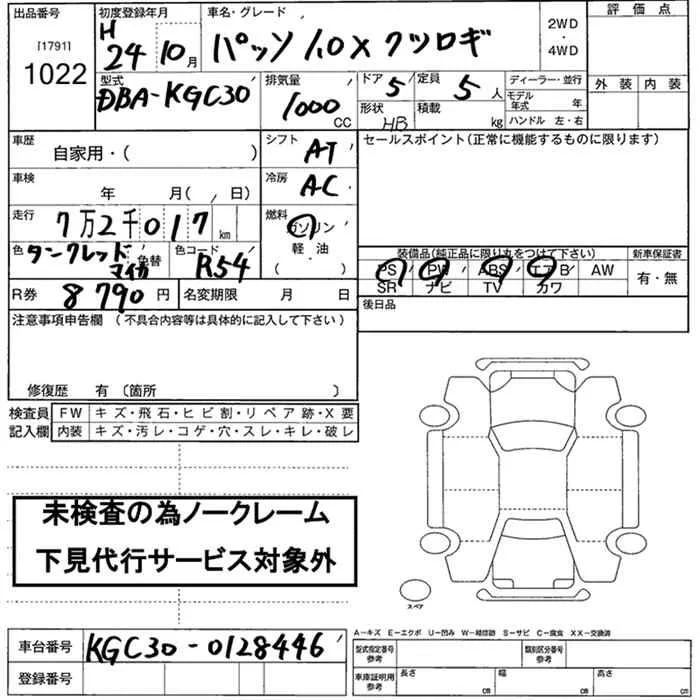 出品番号 初度登録年月 車名・グレード 評価点
[1791] 1022 H 24 10月 パッソ 1.0X クツロギ 2WD・4WD
型式 DBA-KGC30 排気量 1000 CC ドア 5 定員 5 人 ディーラー・並行 外装 内装
形状 HB 積載 kg モデル年式 年
ハンドル 左・右
車歴 自家用・( ) シフト AT セールスポイント(正常に機能するものに限ります)
車検 年 月( 日) 冷房 AC
走行 7万2千017 km 燃料 ガソリン
軽・油
( )
色 タンクレッドマイカ 色替 色コード R54 装備品(純正品に限り丸をつけて下さい) 新車保証書
PS PW ABS エアB AW 有・無
SR ナビ TV カワ
R券 8790 円 名変期限 月 日 後日品
注意事項申告欄 (不具合内容等は具体的に記入して下さい)
修復歴 有 〔箇所 〕
検査員 FW キズ・飛石・ヒビ割・リペア跡・X要
記入欄 内装 キズ・汚レ・コゲ・穴・スレ・キレ・破レ
未検査の為ノークレーム
下見代行サービス対象外
スペア
A-キズ E-エクボ U-凹み W-補修跡 S-サビ C-腐食 XX-交換済
車台番号 KGC30-0128446 型式指定番号 参考 類別区分番号 参考
登録番号 車庫証明用 参考 長さ cm 幅 cm 高さ cm